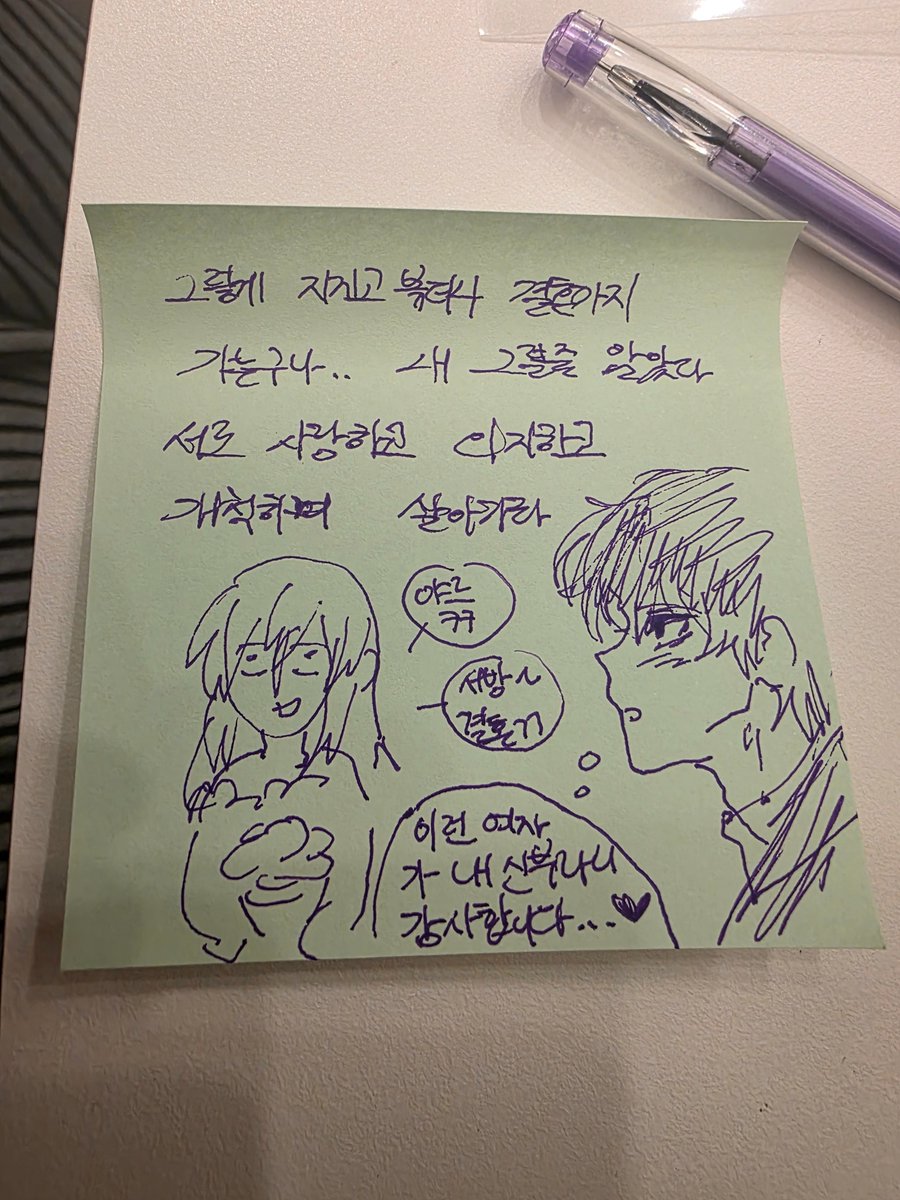 그렇게 지지고 볶더니 결혼까지
가는구나.. 내 그럴줄 알았다
서로 사랑하고 의지하고
개척하며 살아가라
야르
ㅋㅋ
서방~
결혼ㄱㄱ
이런 여자
가 내 신부라니
감사합니다...♥